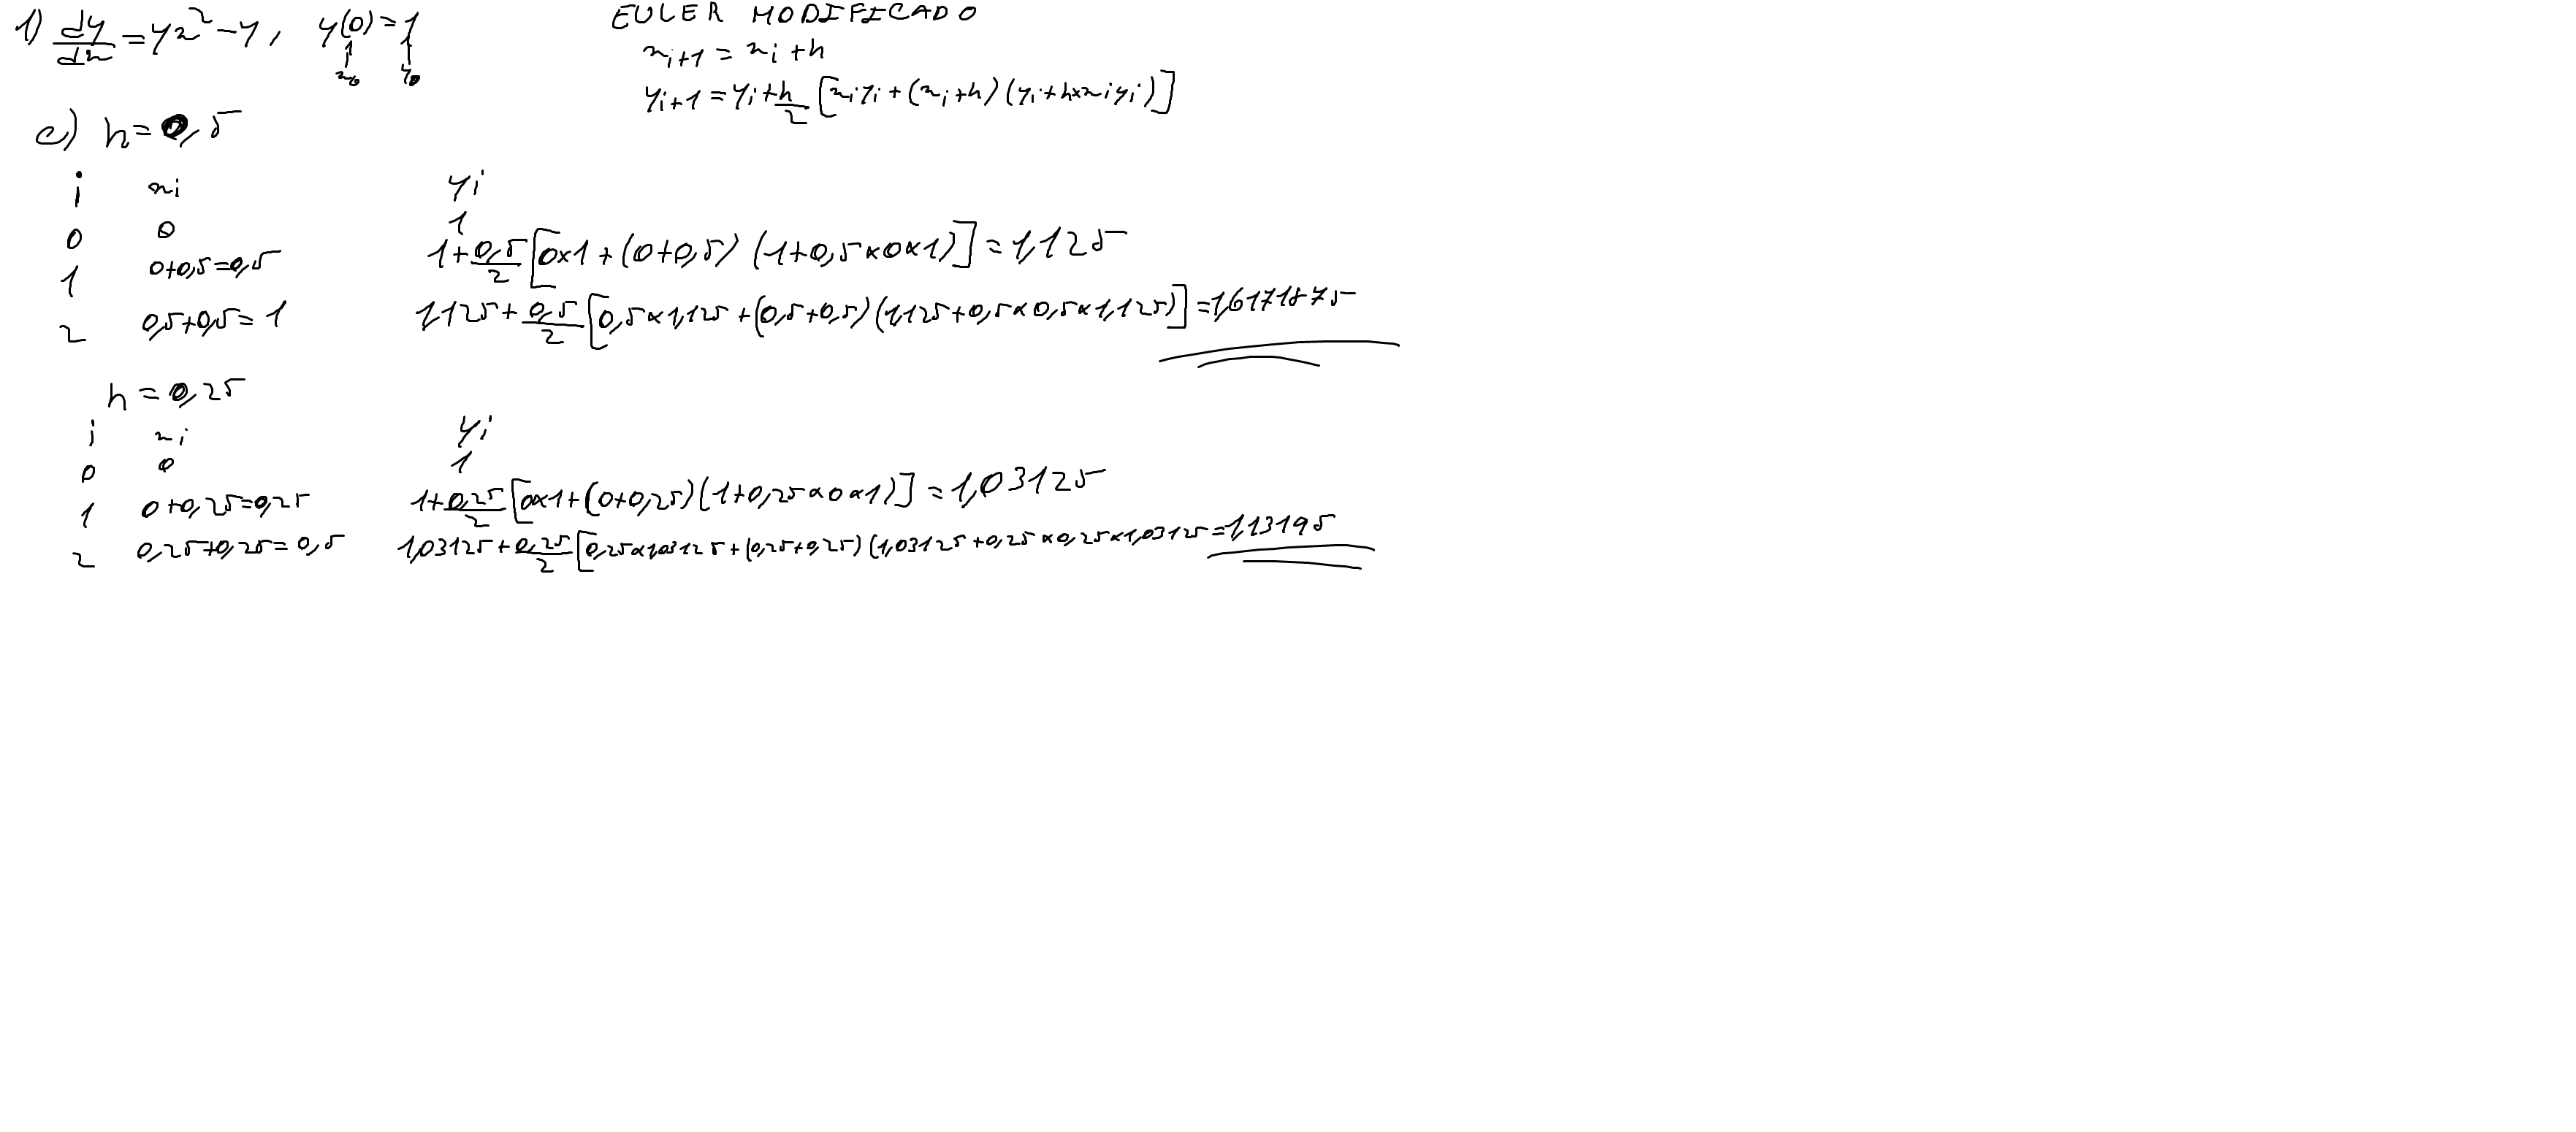 1) dy/dx = yx² - y, y(0) = 1
x₀ y₀
EULER MODIFICADO
xi+1 = xi + h
yi+1 = yi + h/2 [xiyi + (xi + h) (yi + h×xiyi)]
c) h = 0,5
i xi yi
0 0 1
1 0+0,5=0,5 1 + 0,5/2 [0×1 + (0+0,5) (1+0,5×0×1)] = 1,125
2 0,5+0,5=1 1,125 + 0,5/2 [0,5×1,125 + (0,5+0,5) (1,125+0,5×0,5×1,125)] = 1,6171875
h = 0,25
i xi yi
0 0 1
1 0+0,25=0,25 1 + 0,25/2 [0×1 + (0+0,25) (1+0,25×0×1)] = 1,03125
2 0,25+0,25=0,5 1,03125 + 0,25/2 [0,25×1,03125 + (0,25+0,25) (1,03125+0,25×0,25×1,03125 = 1,13195